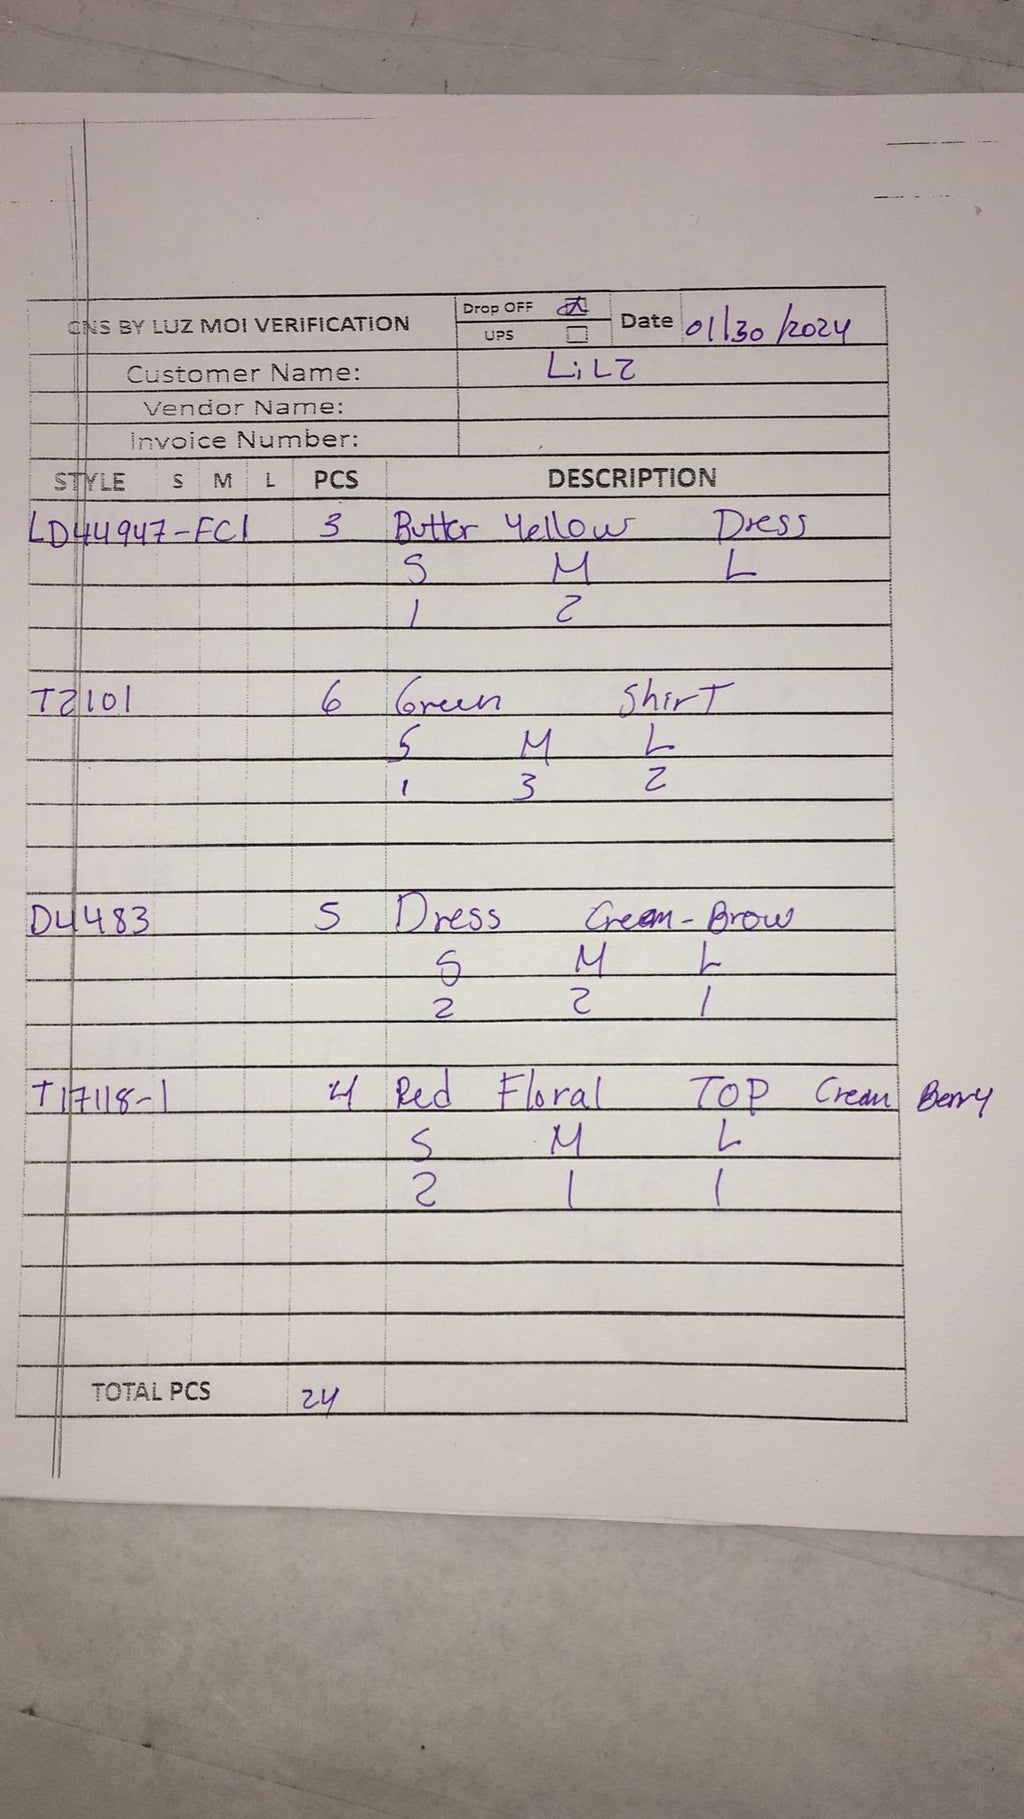 CNS BY LUZ MOI VERIFICATION Drop OFF UPS Date 01/30/2024
Customer Name: LiLZ
Vendor Name:
Invoice Number:
STYLE S M L PCS DESCRIPTION
LD44947-FC1 3 Butter Yellow Dress
S M L
1 2
T2101 6 Green Shirt
S M L
1 3 2
D4483 5 Dress Cream-Brow
S M L
2 2 1
T17118-1 4 Red Floral TOP Cream Berry
S M L
2 1 1
TOTAL PCS 24